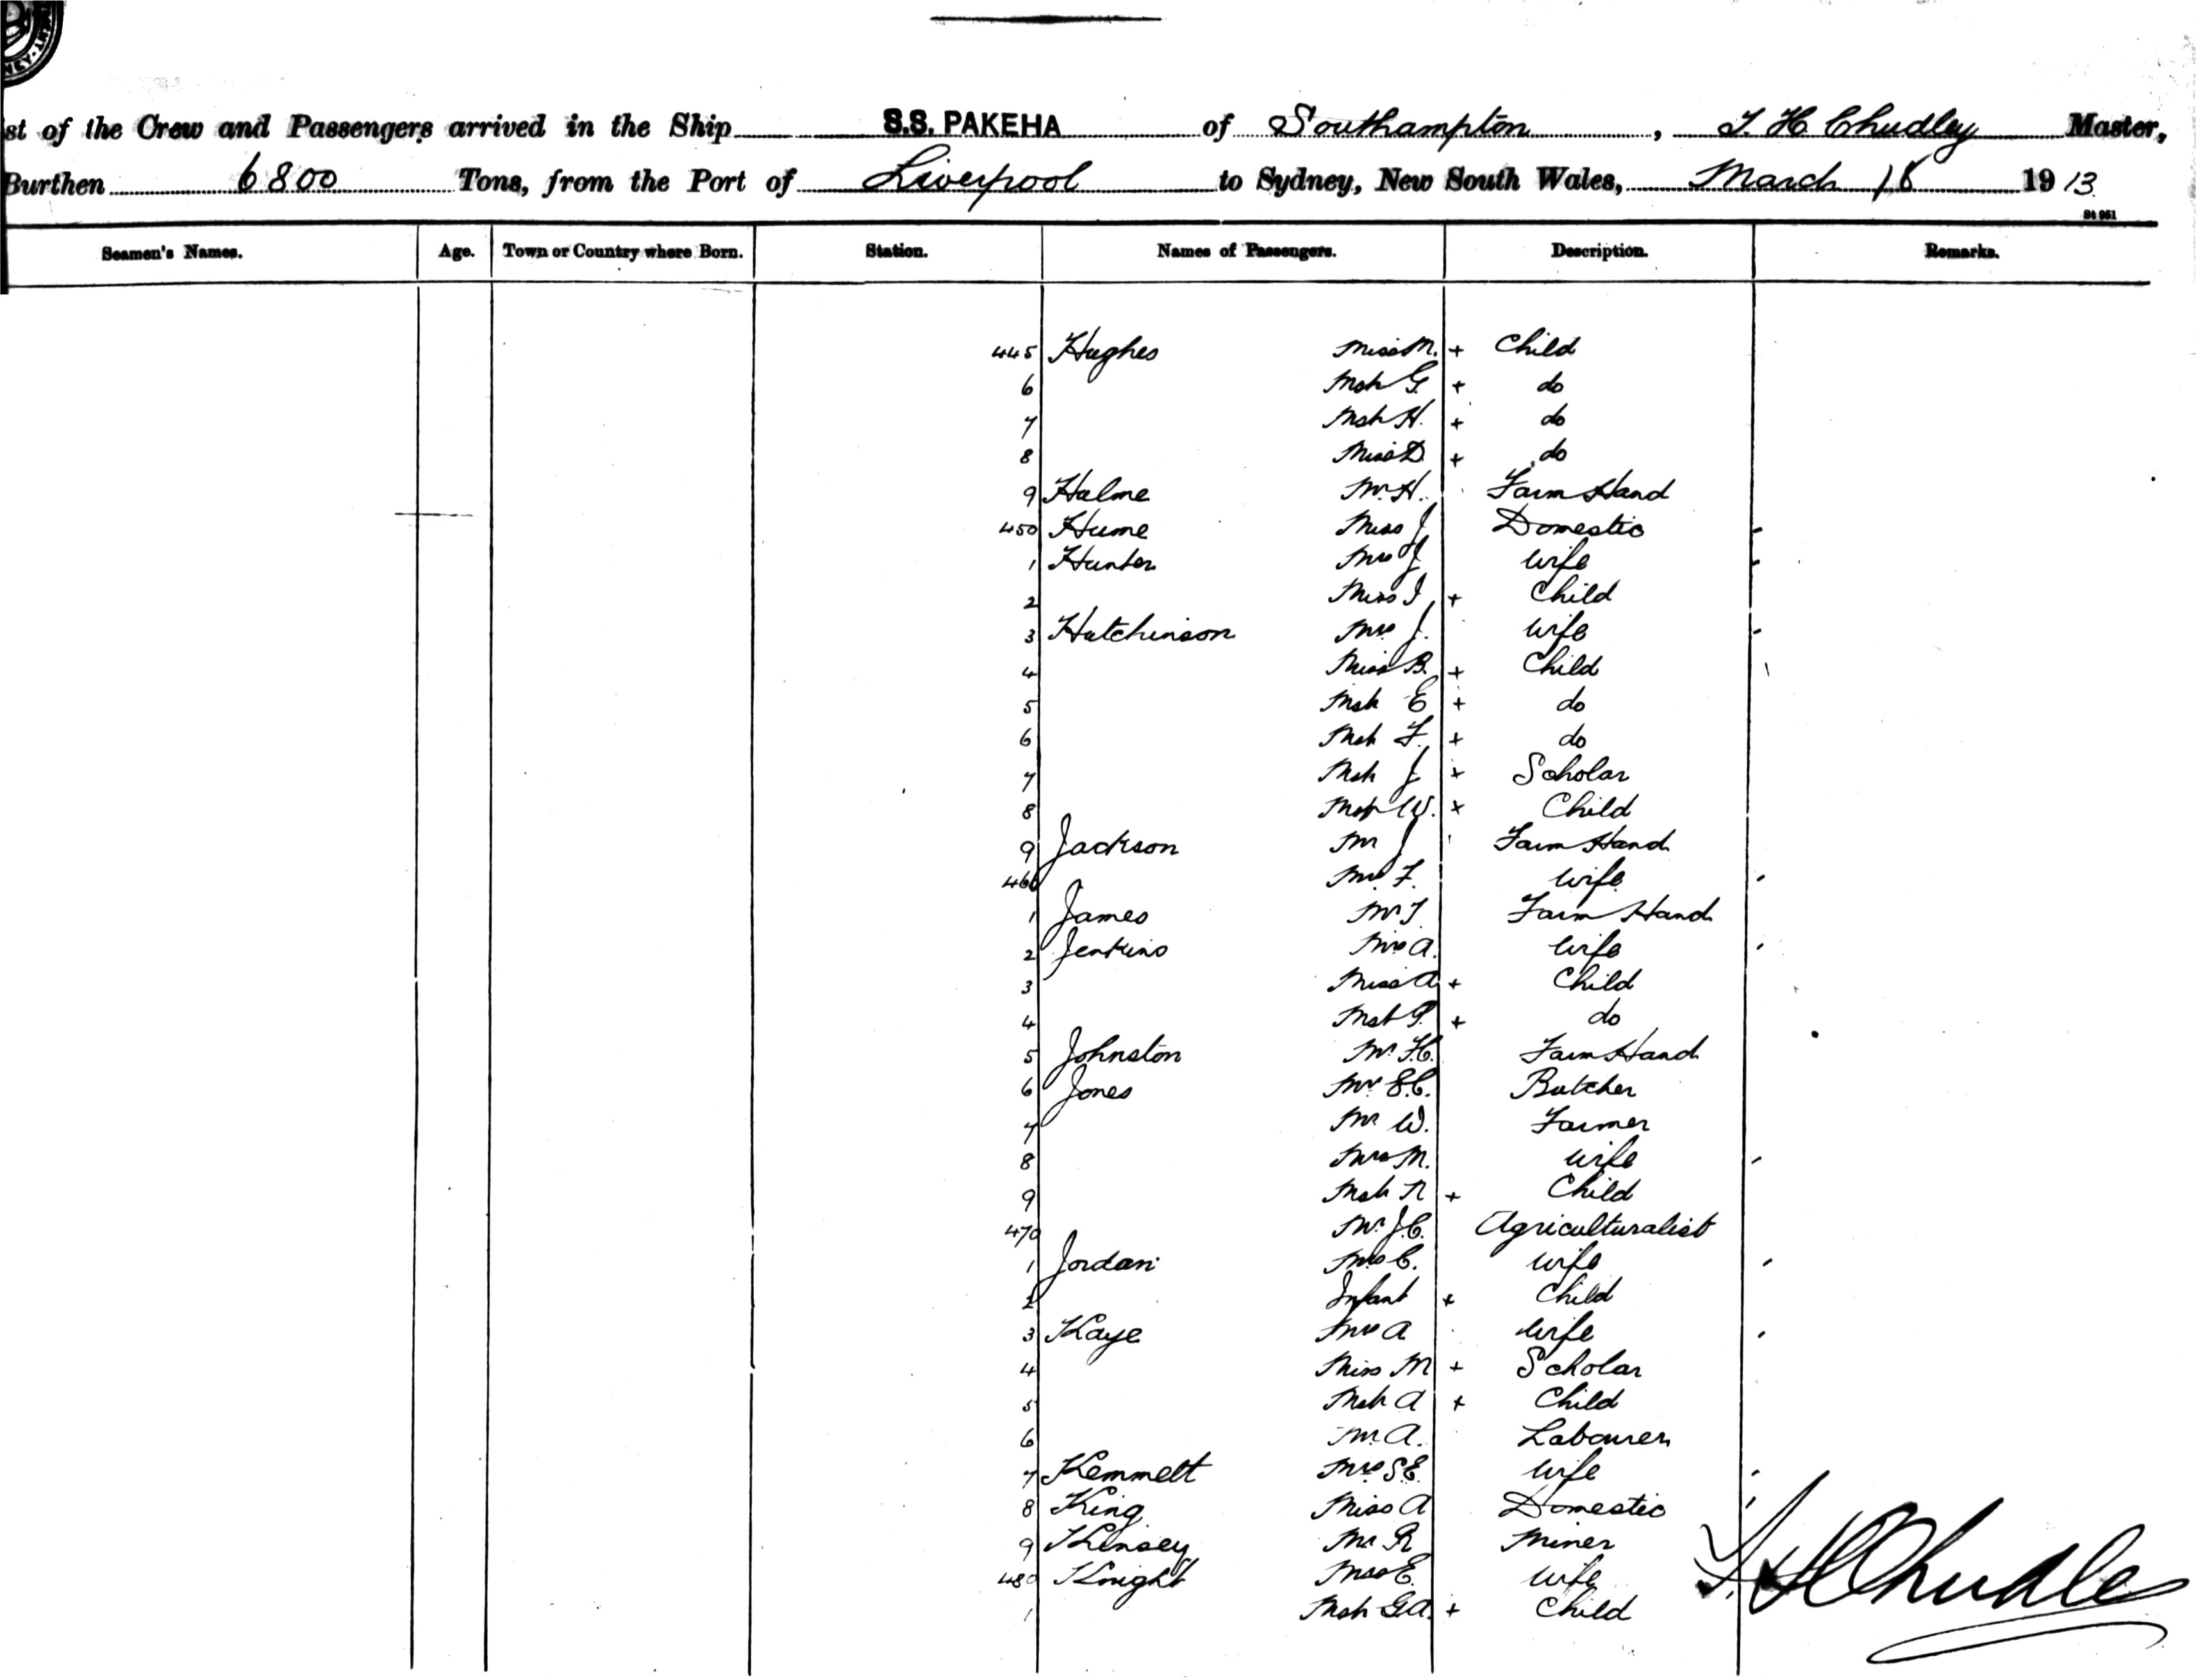 st of the Crew and Passengers arrived in the Ship S.S. PAKEHA of Southampton, T. H. Chudley Master,
Burthen 6800 Tons, from the Port of Liverpool to Sydney, New South Wales, March 18 1913.
St 951
Seamen's Names. Age. Town or Country where Born. Station. Names of Passengers. Description. Remarks.
445 Hughes Miss M. + Child
6 Mstr G. + do
7 Mstr H. + do
8 Miss D + do
9 Hulme Mr H. Farm Hand
450 Hume Miss J Domestic
1 Hunter Mrs J Wife
2 Miss I + Child
3 Hutchinson Mrs J. Wife
4 Miss B. + Child
5 Mstr E + do
6 Mstr F. + do
7 Mstr J + Scholar
8 Mstr W. + Child
9 Jackson Mr J Farm Hand
460 Mrs F. Wife
1 James Mr T. Farm Hand
2 Jenkins Mrs A. Wife
3 Miss A + Child
4 Mstr P. + do
5 Johnston Mr F.C. Farm Hand
6 Jones Mr E.C. Butcher
7 Mr W. Farmer
8 Mrs M. Wife
9 Mstr R + Child
470 Mr J.C. Agriculturalist
1 Jordan Mrs C. Wife
2 Infant + Child
3 Kaye Mrs A Wife
4 Miss M + Scholar
5 Mstr A + Child
6 Mr A. Labourer
7 Kemmett Mrs S.E. Wife
8 King Miss A Domestic
9 Kinsey Mr R Miner
480 Knight Mrs E. Wife
1 Mstr G.A. + Child
T. H Chudley